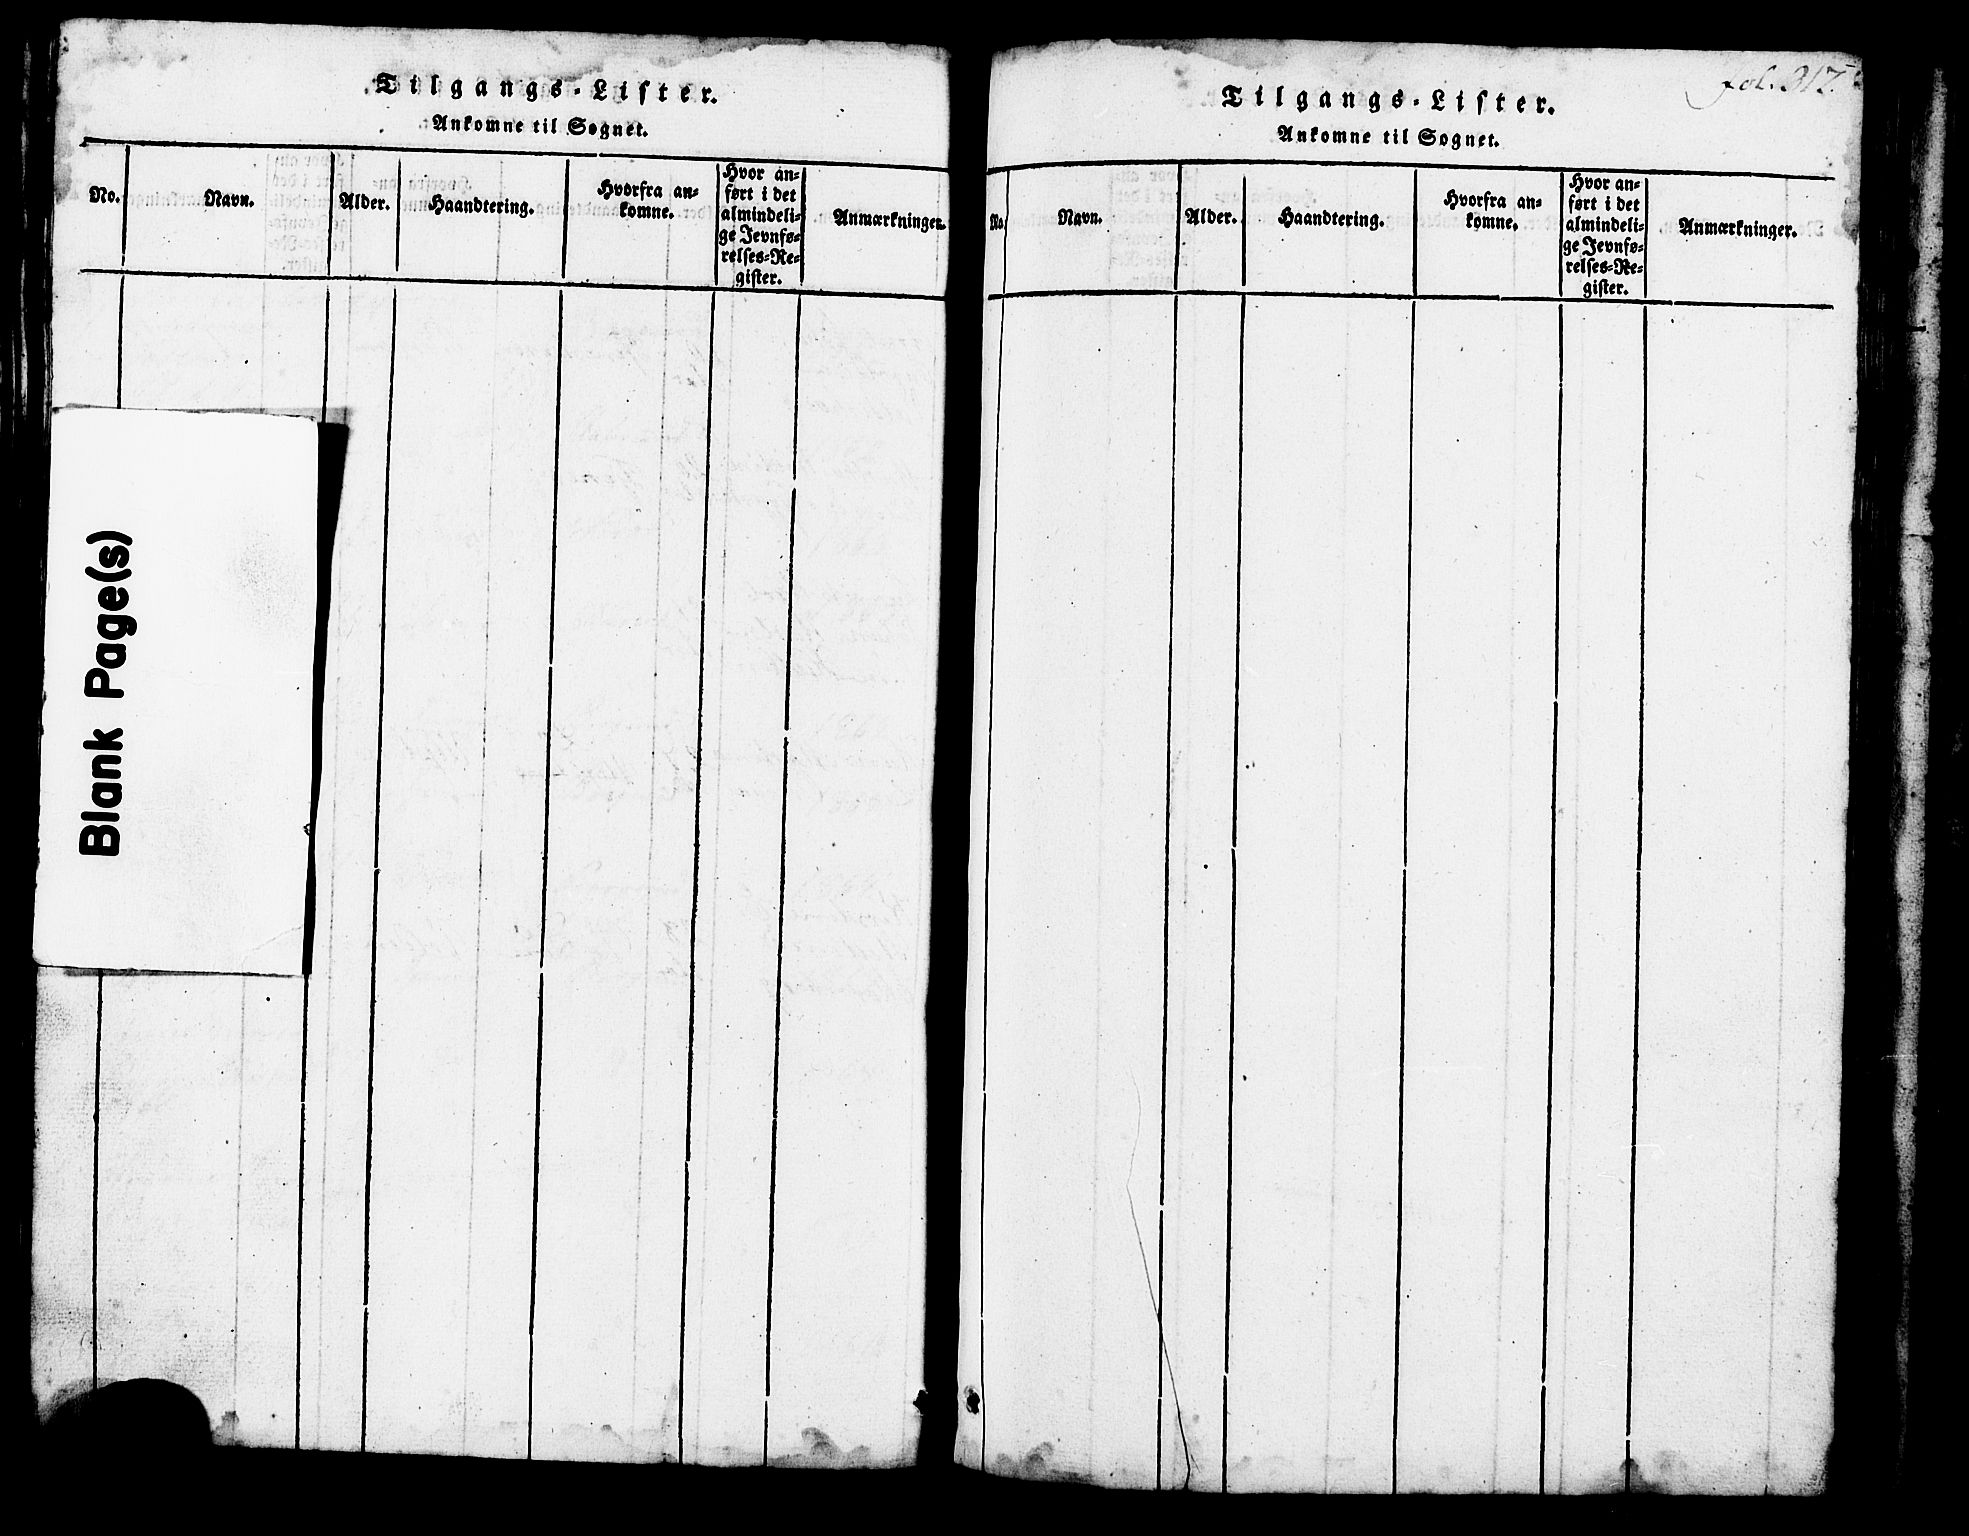 Tilgangs-Lister.
Ankomne til Sognet.
No.
Navn.
Alder.
Haandtering.
Hvorfra an-
komne.
Hvor an-
ført i det
almindeli-
ge Jevnfø-
relses-Re-
gister.
Anmærkninger.
Blank Page(s)
fol. 317.
Tilgangs-Lister.
Ankomne til Sognet.
No.
Navn.
Alder.
Haandtering.
Hvorfra an-
komne.
Hvor an-
ført i det
almindeli-
ge Jevnfø-
relses-Re-
gister.
Anmærkninger.